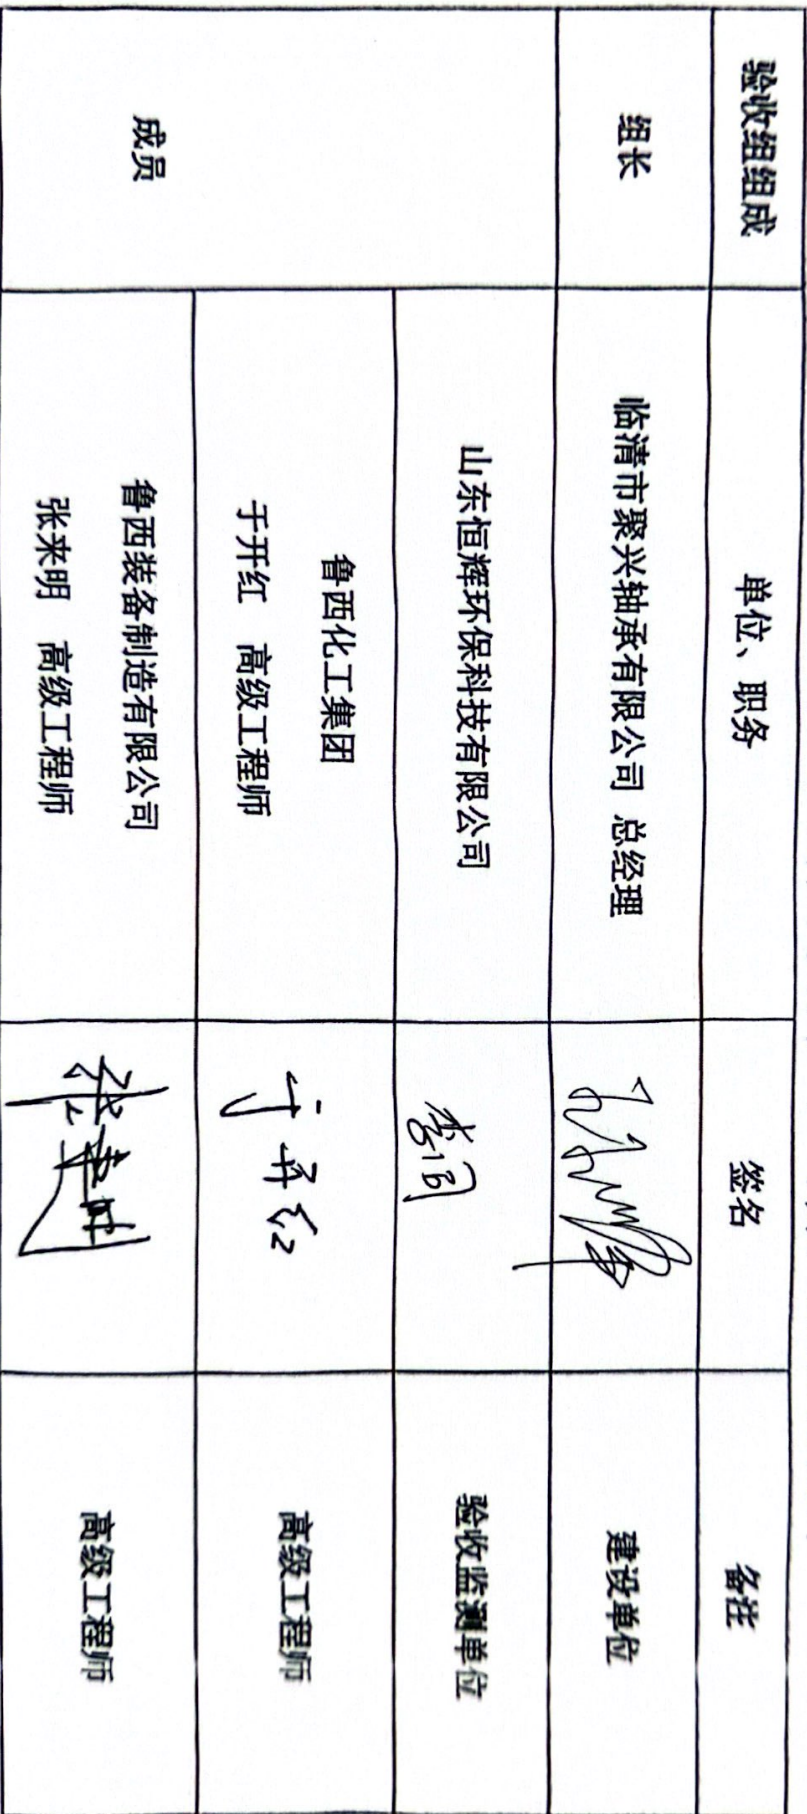 验收组组成 单位、职务 签名 备注
组长 临清市聚兴轴承有限公司 总经理 建设单位
成员 山东恒辉环保科技有限公司 李闯 验收监测单位
鲁西化工集团
于开红 高级工程师 于开红 高级工程师
鲁西装备制造有限公司
张来明 高级工程师 张来明 高级工程师